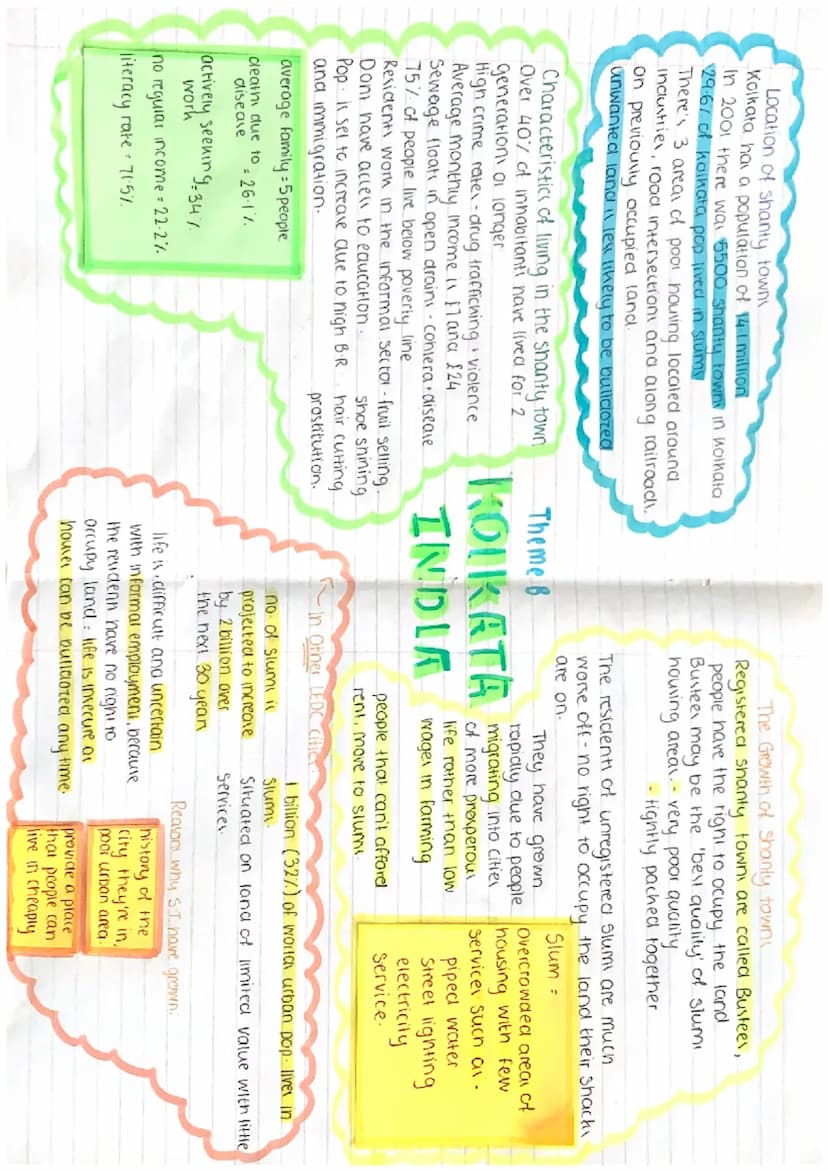 Location of shanty towns
Kolkata has a population of 14.1 million
In 2001 there was 5500 shanty towns in Kolkata
29.6% of Kolkata pop lived in slums
There's 3 areas of poor housing located around
industries, road intersections and along railroads,
on previously occupied land.
unwanted land is less likely to be bulldozed
Characteristics of living in the shanty town
Over 40% of inhabitants have lived for 2
generations or longer
High crime rates - drug trafficking + violence
Average monthly income is £7 and £24
Sewage floats in open drains - cohlera + disease
75% of people live below poverty line
Residents work in the informal sector - fruit selling.
Dont have access to education.
shoe shining
Pop. is set to increase due to high B.R
hair cutting
and immigration.
prostitution.
average family = 5 people
death due to = 26.1%
disease
actively seeking = 34%
work
no regular income = 22.2%
literacy rate = 71.5%
Theme B
KOLKATA
INDIA
The Growth of shanty towns
Registered shanty towns are called Bustees,
people have the right to ocupy the land
Bustees may be the 'best quality' of slums
housing areas. - very poor quality
- tightly packed together
The residents of unregistered slums are much
worse off - no right to occupy the land their shacks
are on.
They have grown
rapidly due to people
migrating into cities
of more prosperous
life rather than low
wages in farming
people that can't afford
rent, move to slums.
Slum =
Overcrowded areas of
housing with few
services such as -
piped water
street lighting
electricity
service.
In Other LEDC cities.
no. of slums is
projected to increase
by 2 billion over
the next 30 years
1 billion (32%) of worlds urban pop. lives in
slums.
Situated on land of limited value with little
services.
life is difficult and uncertain
with informal employment, because
the residents have no right to
occupy land = life is insecure as
houses can be bulldozed anytime.
Reasons why S.T have grown.
history of the
city they're in,
poor urban area.
provide a place
that people can
live in cheaply